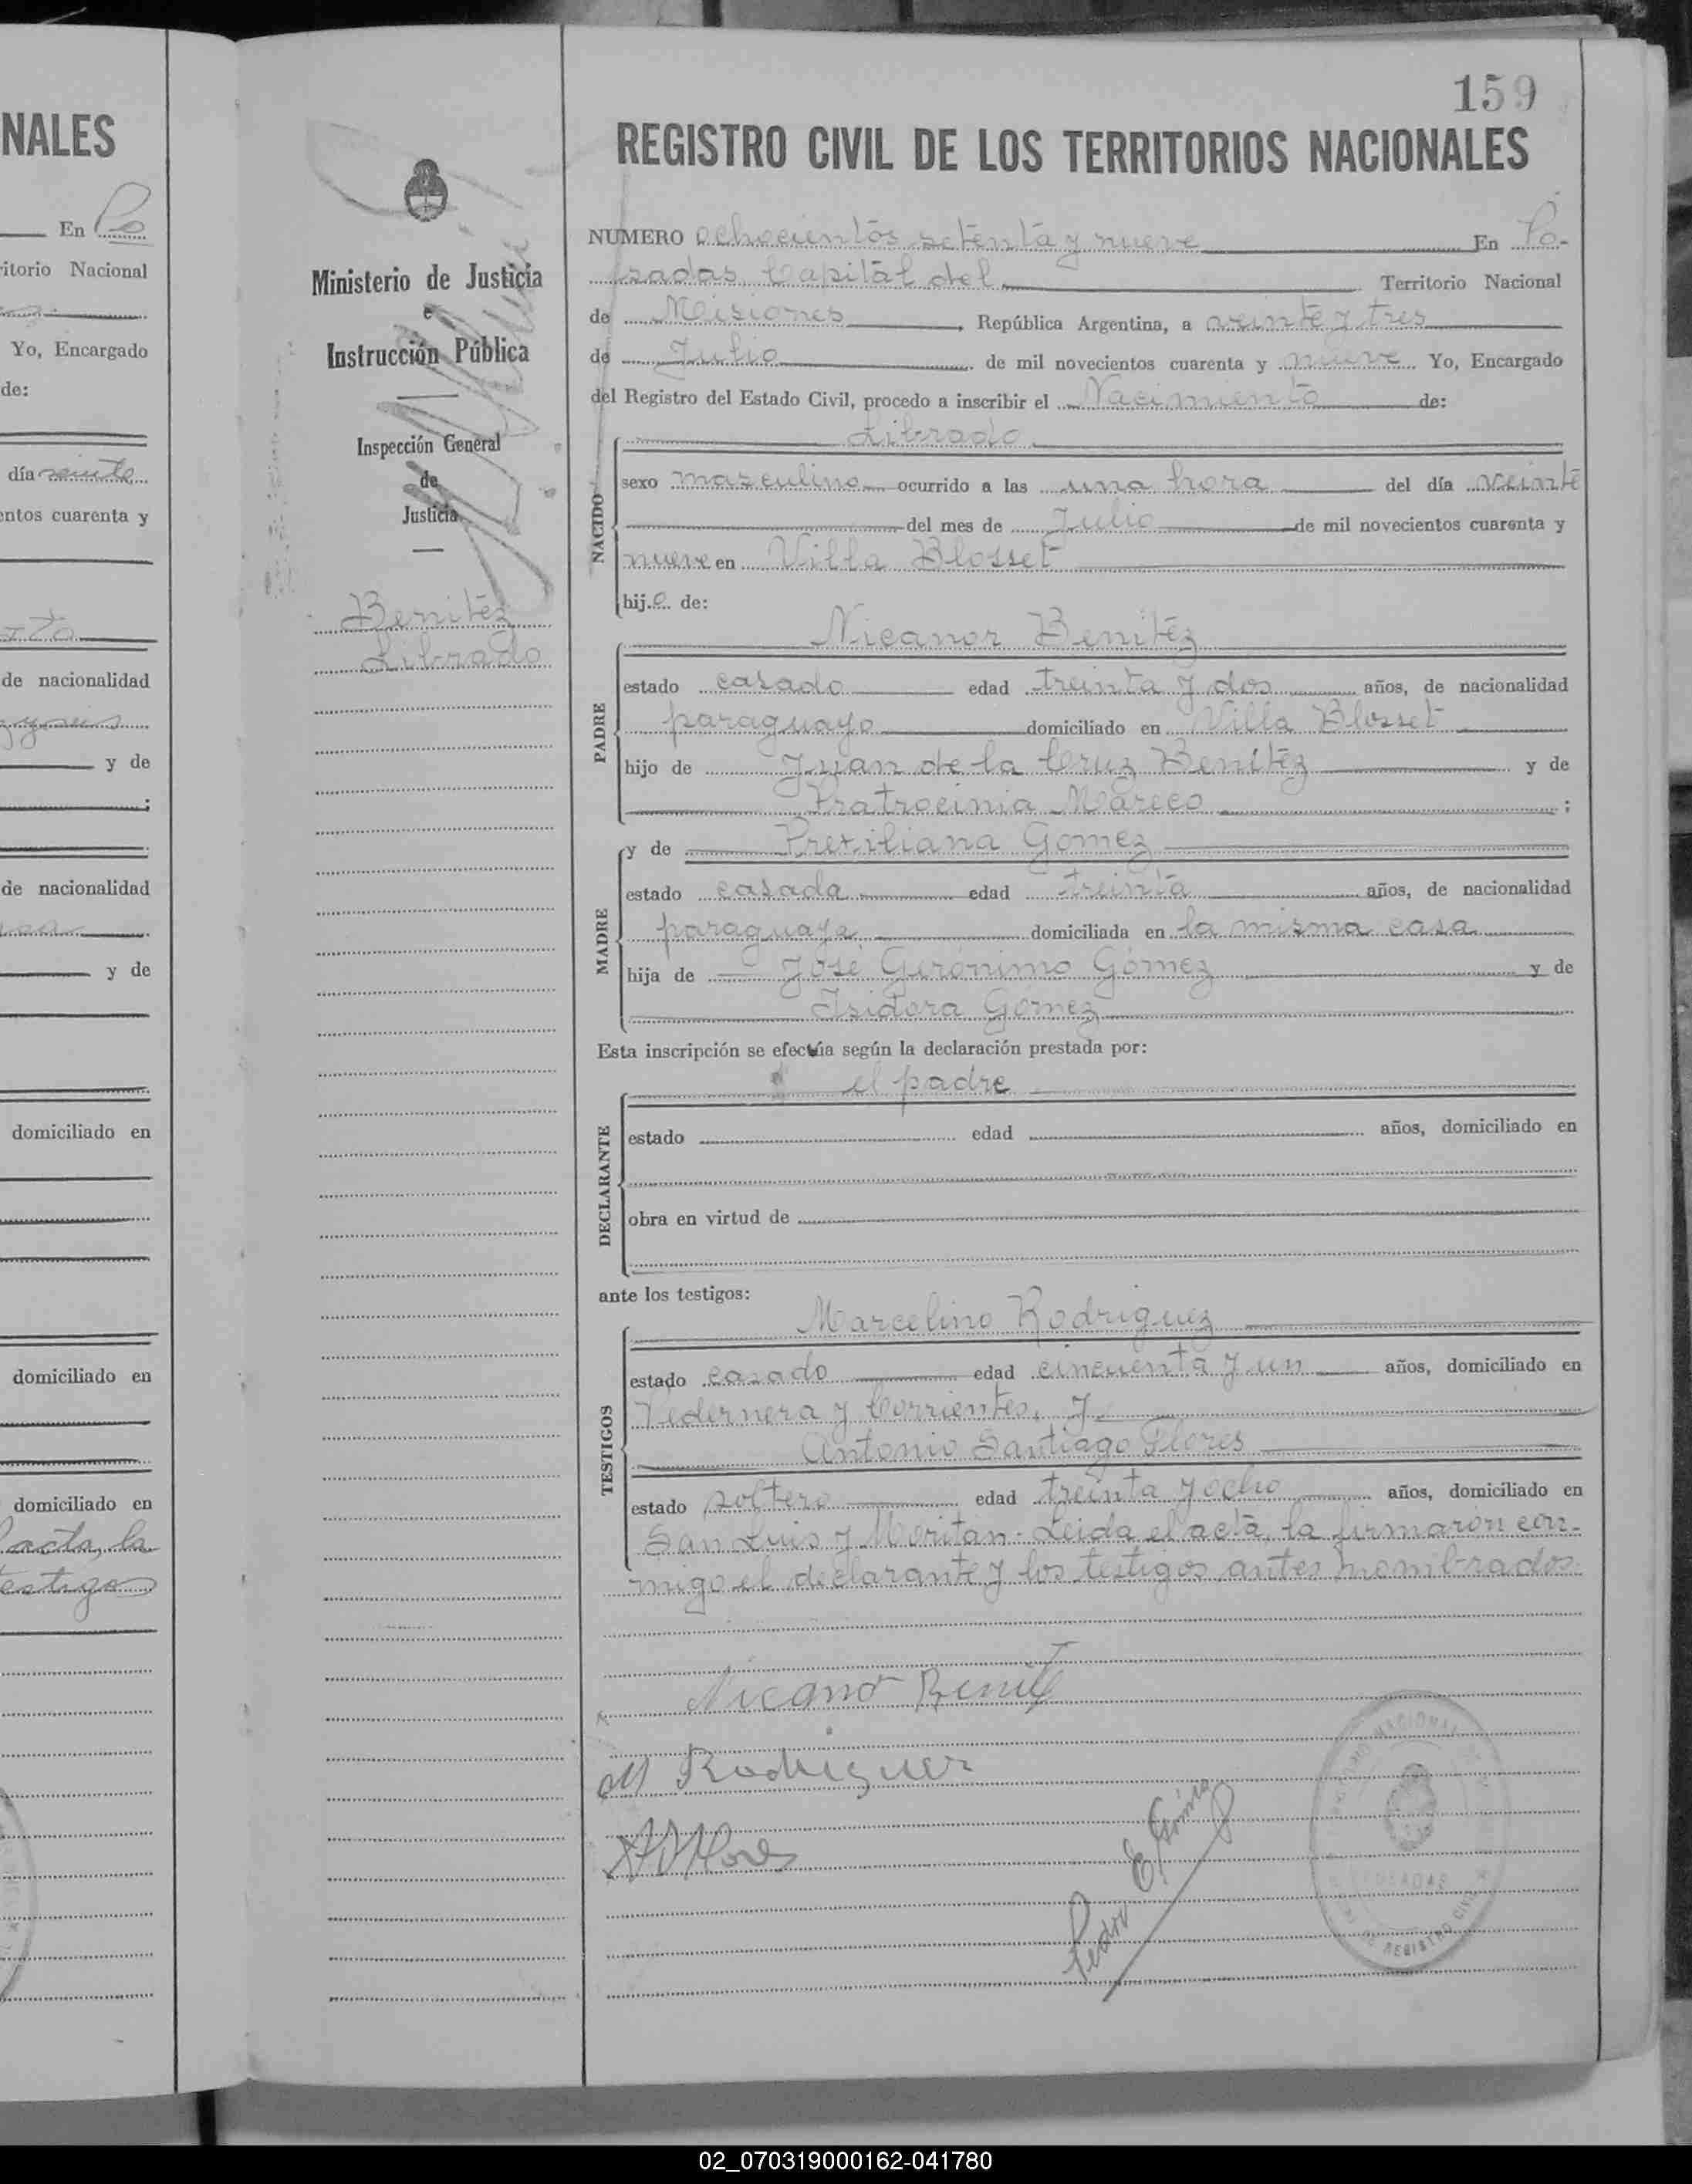 NALES
En Po
itorio Nacional
Yo, Encargado
de:
día veinte
entos cuarenta y
de nacionalidad
y de
de nacionalidad
y de
domiciliado en
domiciliado en
domiciliado en
acta, la
estigos
Ministerio de Justicia
e
Instrucción Pública
Inspección General
de
Justicia
Benitéz
Librado
159
REGISTRO CIVIL DE LOS TERRITORIOS NACIONALES
NUMERO ochocientos setenta y nueve En Po-
sadas Capital del Territorio Nacional
de Misiones, República Argentina, a veinte y tres
de Julio de mil novecientos cuarenta y nueve Yo, Encargado
del Registro del Estado Civil, procedo a inscribir el Nacimiento de:
Librado
NACIDO
sexo masculino ocurrido a las una hora del día veinte
del mes de Julio de mil novecientos cuarenta y
nueve en Villa Blosset
hijo de:
Nicanor Benitéz
PADRE
estado casado edad treinta y dos años, de nacionalidad
paraguayo domiciliado en Villa Blosset
hijo de Juan de la Cruz Benitéz y de
Pratrocinia Mareco ;
MADRE
y de Prexiliana Gomez
estado casada edad treinta años, de nacionalidad
paraguaya domiciliada en la misma casa
hija de José Gerónimo Gómez y de
Isidora Gómez
Esta inscripción se efectúa según la declaración prestada por:
el padre
DECLARANTE
estado edad años, domiciliado en
obra en virtud de
ante los testigos:
Marcelino Rodriguez
TESTIGOS
estado casado edad cincuenta y un años, domiciliado en
Pedernera y Corrientes, y
Antonio Santiago Flores
estado soltero edad treinta y ocho años, domiciliado en
San Luis y Moritan. Leida el acta, la firmaron con-
migo el declarante y los testigos antes nombrados.
Nicano Benitz
M Rodriguez
A S Flores
Pedro E Gómez
NACIONAL
POSADAS
REGISTRO CIVIL
02_070319000162-041780